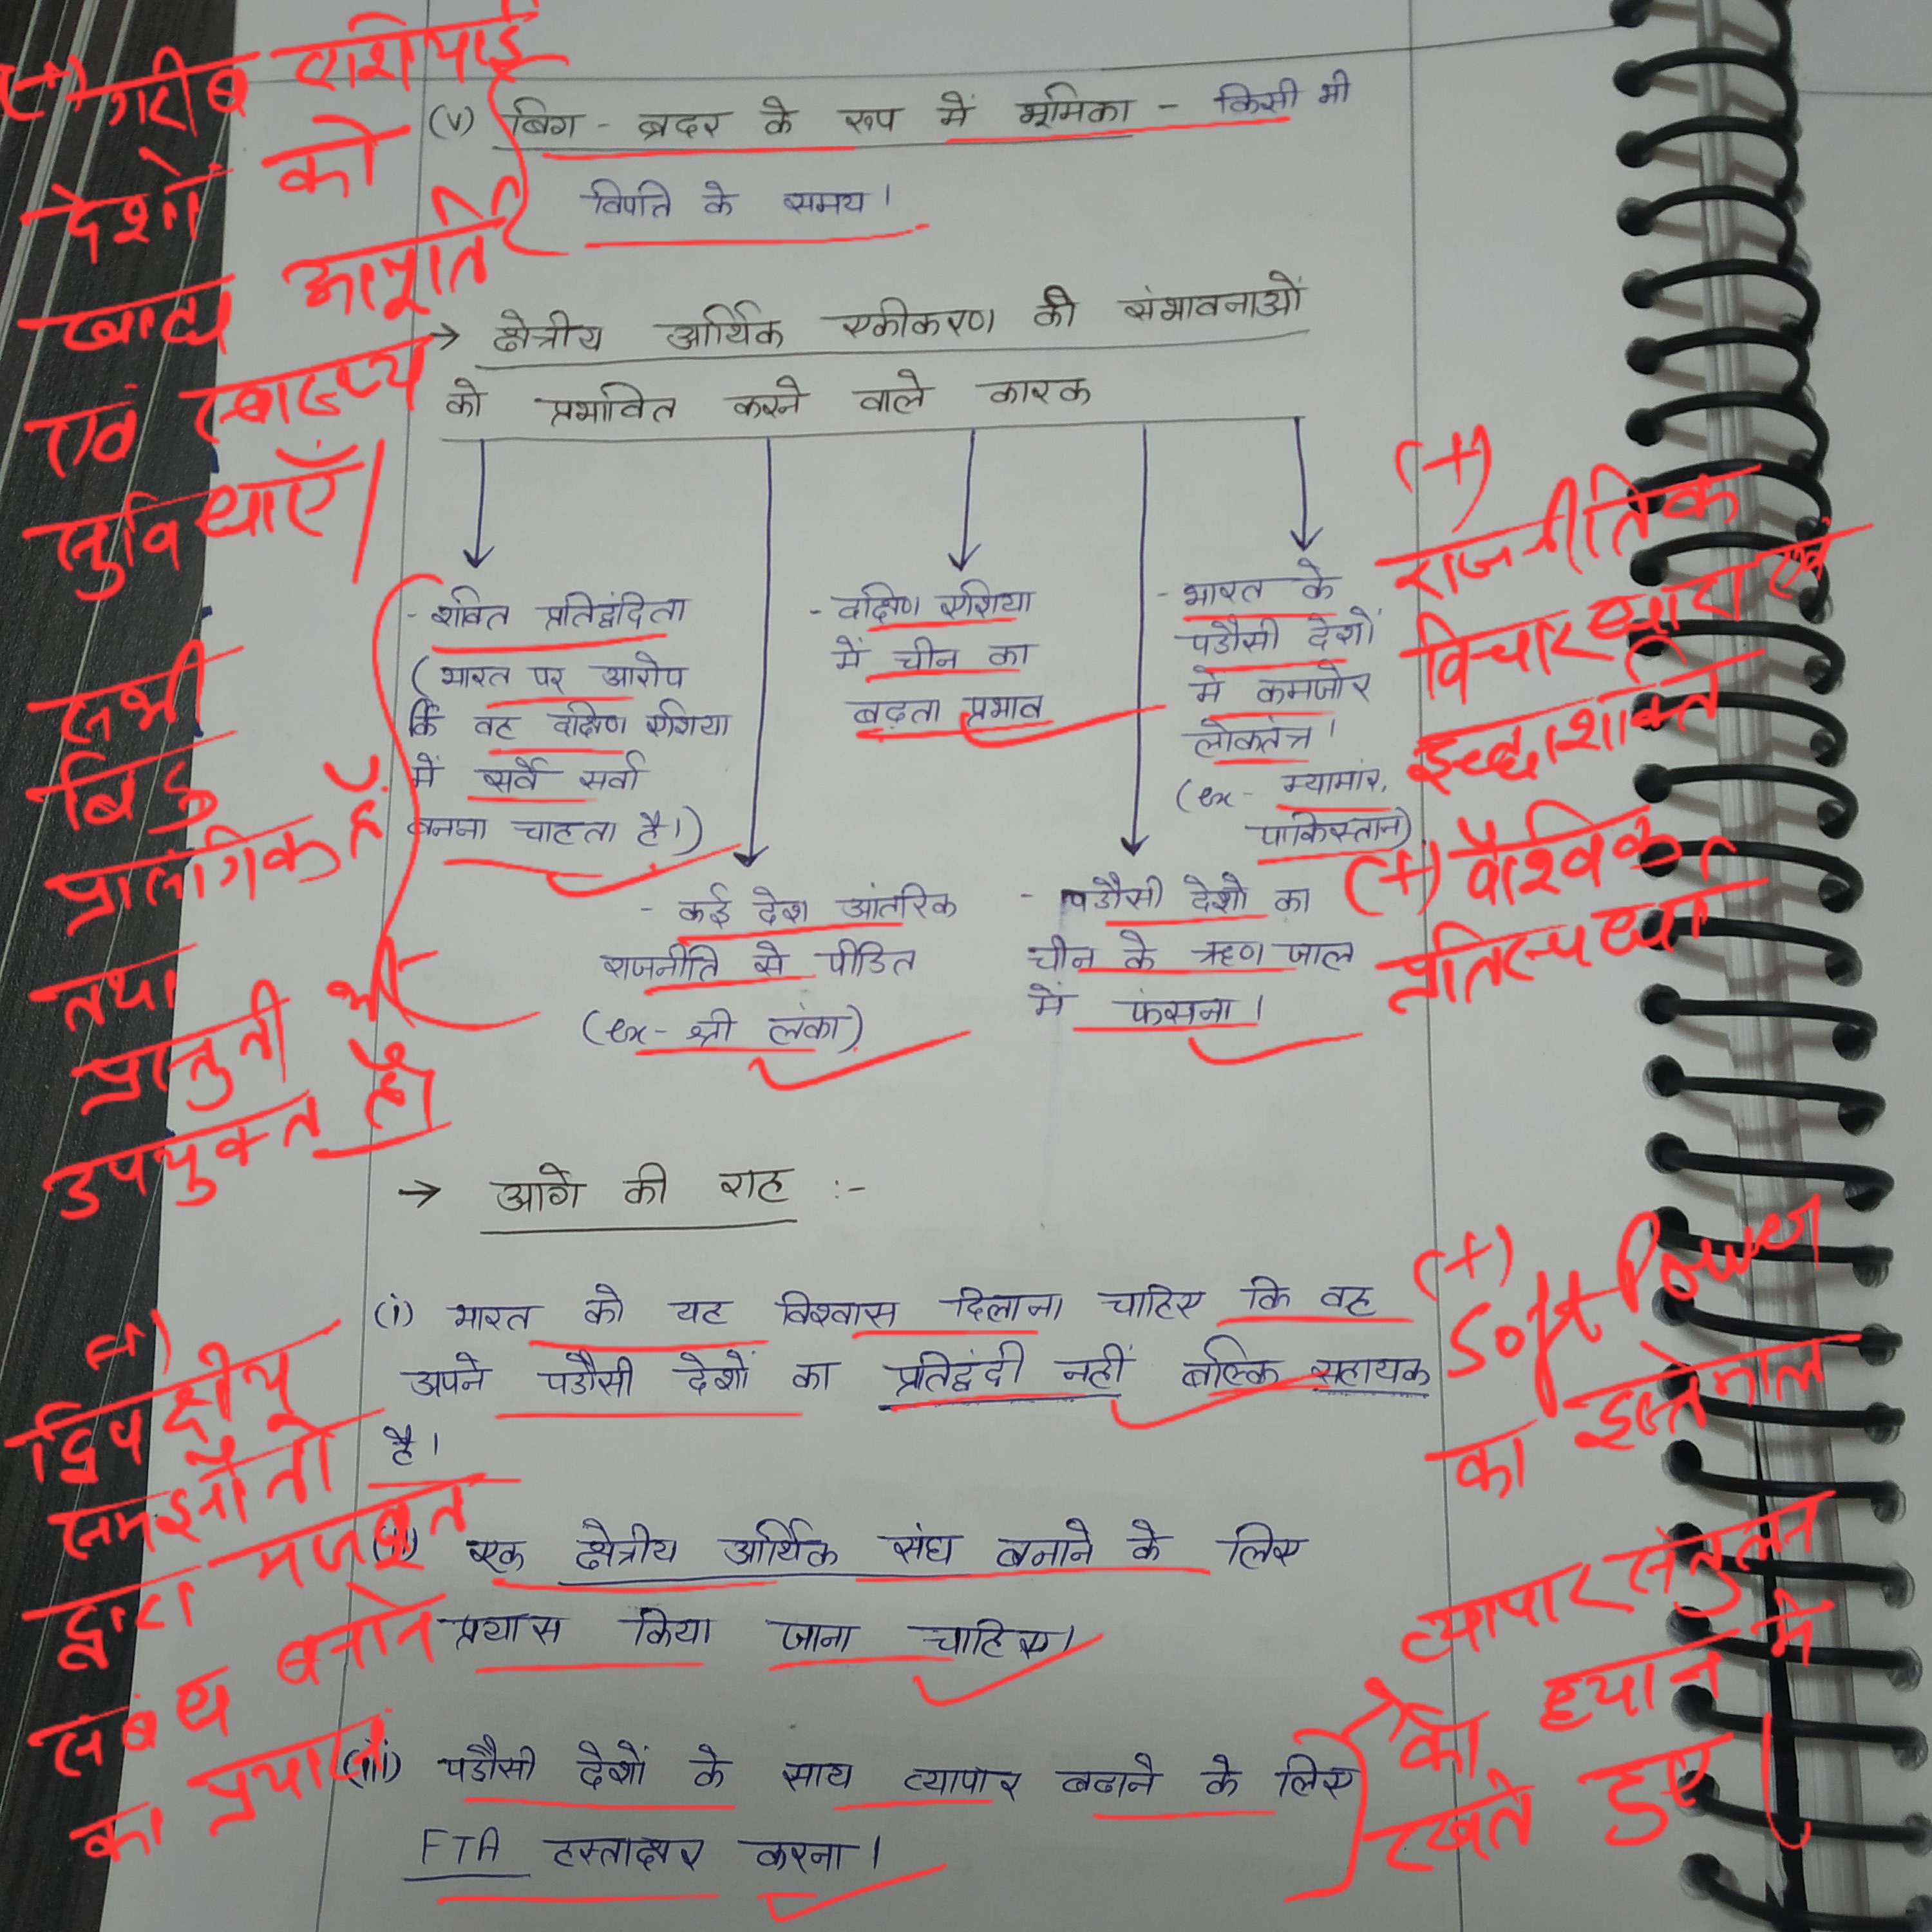 (v) बिग - ब्रदर के रूप में भूमिका - किसी भी
विपत्ति के समय।
(+) गरीब एशियाई
देशों को
खाद्य आपूर्ति
एवं स्वास्थ्य
सुविधाएँ।
→ क्षेत्रीय आर्थिक एकीकरण की संभावनाओं
को प्रभावित करने वाले कारक
- शक्ति प्रतिद्वंदिता
(भारत पर आरोप
कि वह दक्षिण एशिया
में सर्वे सर्वा
बनना चाहता है।)
- कई देश आंतरिक
राजनीति से पीडित
(ex- श्री लंका)
- दक्षिण एशिया
में चीन का
बढ़ता प्रभाव
- पडौसी देशो का
चीन के ऋण जाल
में फंसना।
- भारत के
पडौसी देशों
में कमजोर
लोकतंत्र।
(ex- म्यामांर,
पाकिस्तान)
(+)
राजनीतिक
विचारधारा एवं
इच्छाशक्ति
(+) वैश्विक
प्रतिस्पर्धा
सभी
बिंदु
प्रासंगिक हैं
तथा
प्रस्तुती भी
उपयुक्त है।
→ आगे की राह :-
(i) भारत को यह विश्वास दिलाना चाहिए कि वह
अपने पडौसी देशों का प्रतिद्वंदी नहीं बल्कि सहायक
है।
(+)
Soft Power
का इस्तेमाल
(ii) एक क्षेत्रीय आर्थिक संघ बनाने के लिए
प्रयास किया जाना चाहिए।
(+)
द्विपक्षीय
समझौतो
द्वारा मजबूत
संबंध बनाने
का प्रयास
(iii) पडौसी देशों के साथ व्यापार बढाने के लिए
FTA हस्ताक्षर करना।
व्यापार संतुलन
को ध्यान में
रखते हुए।